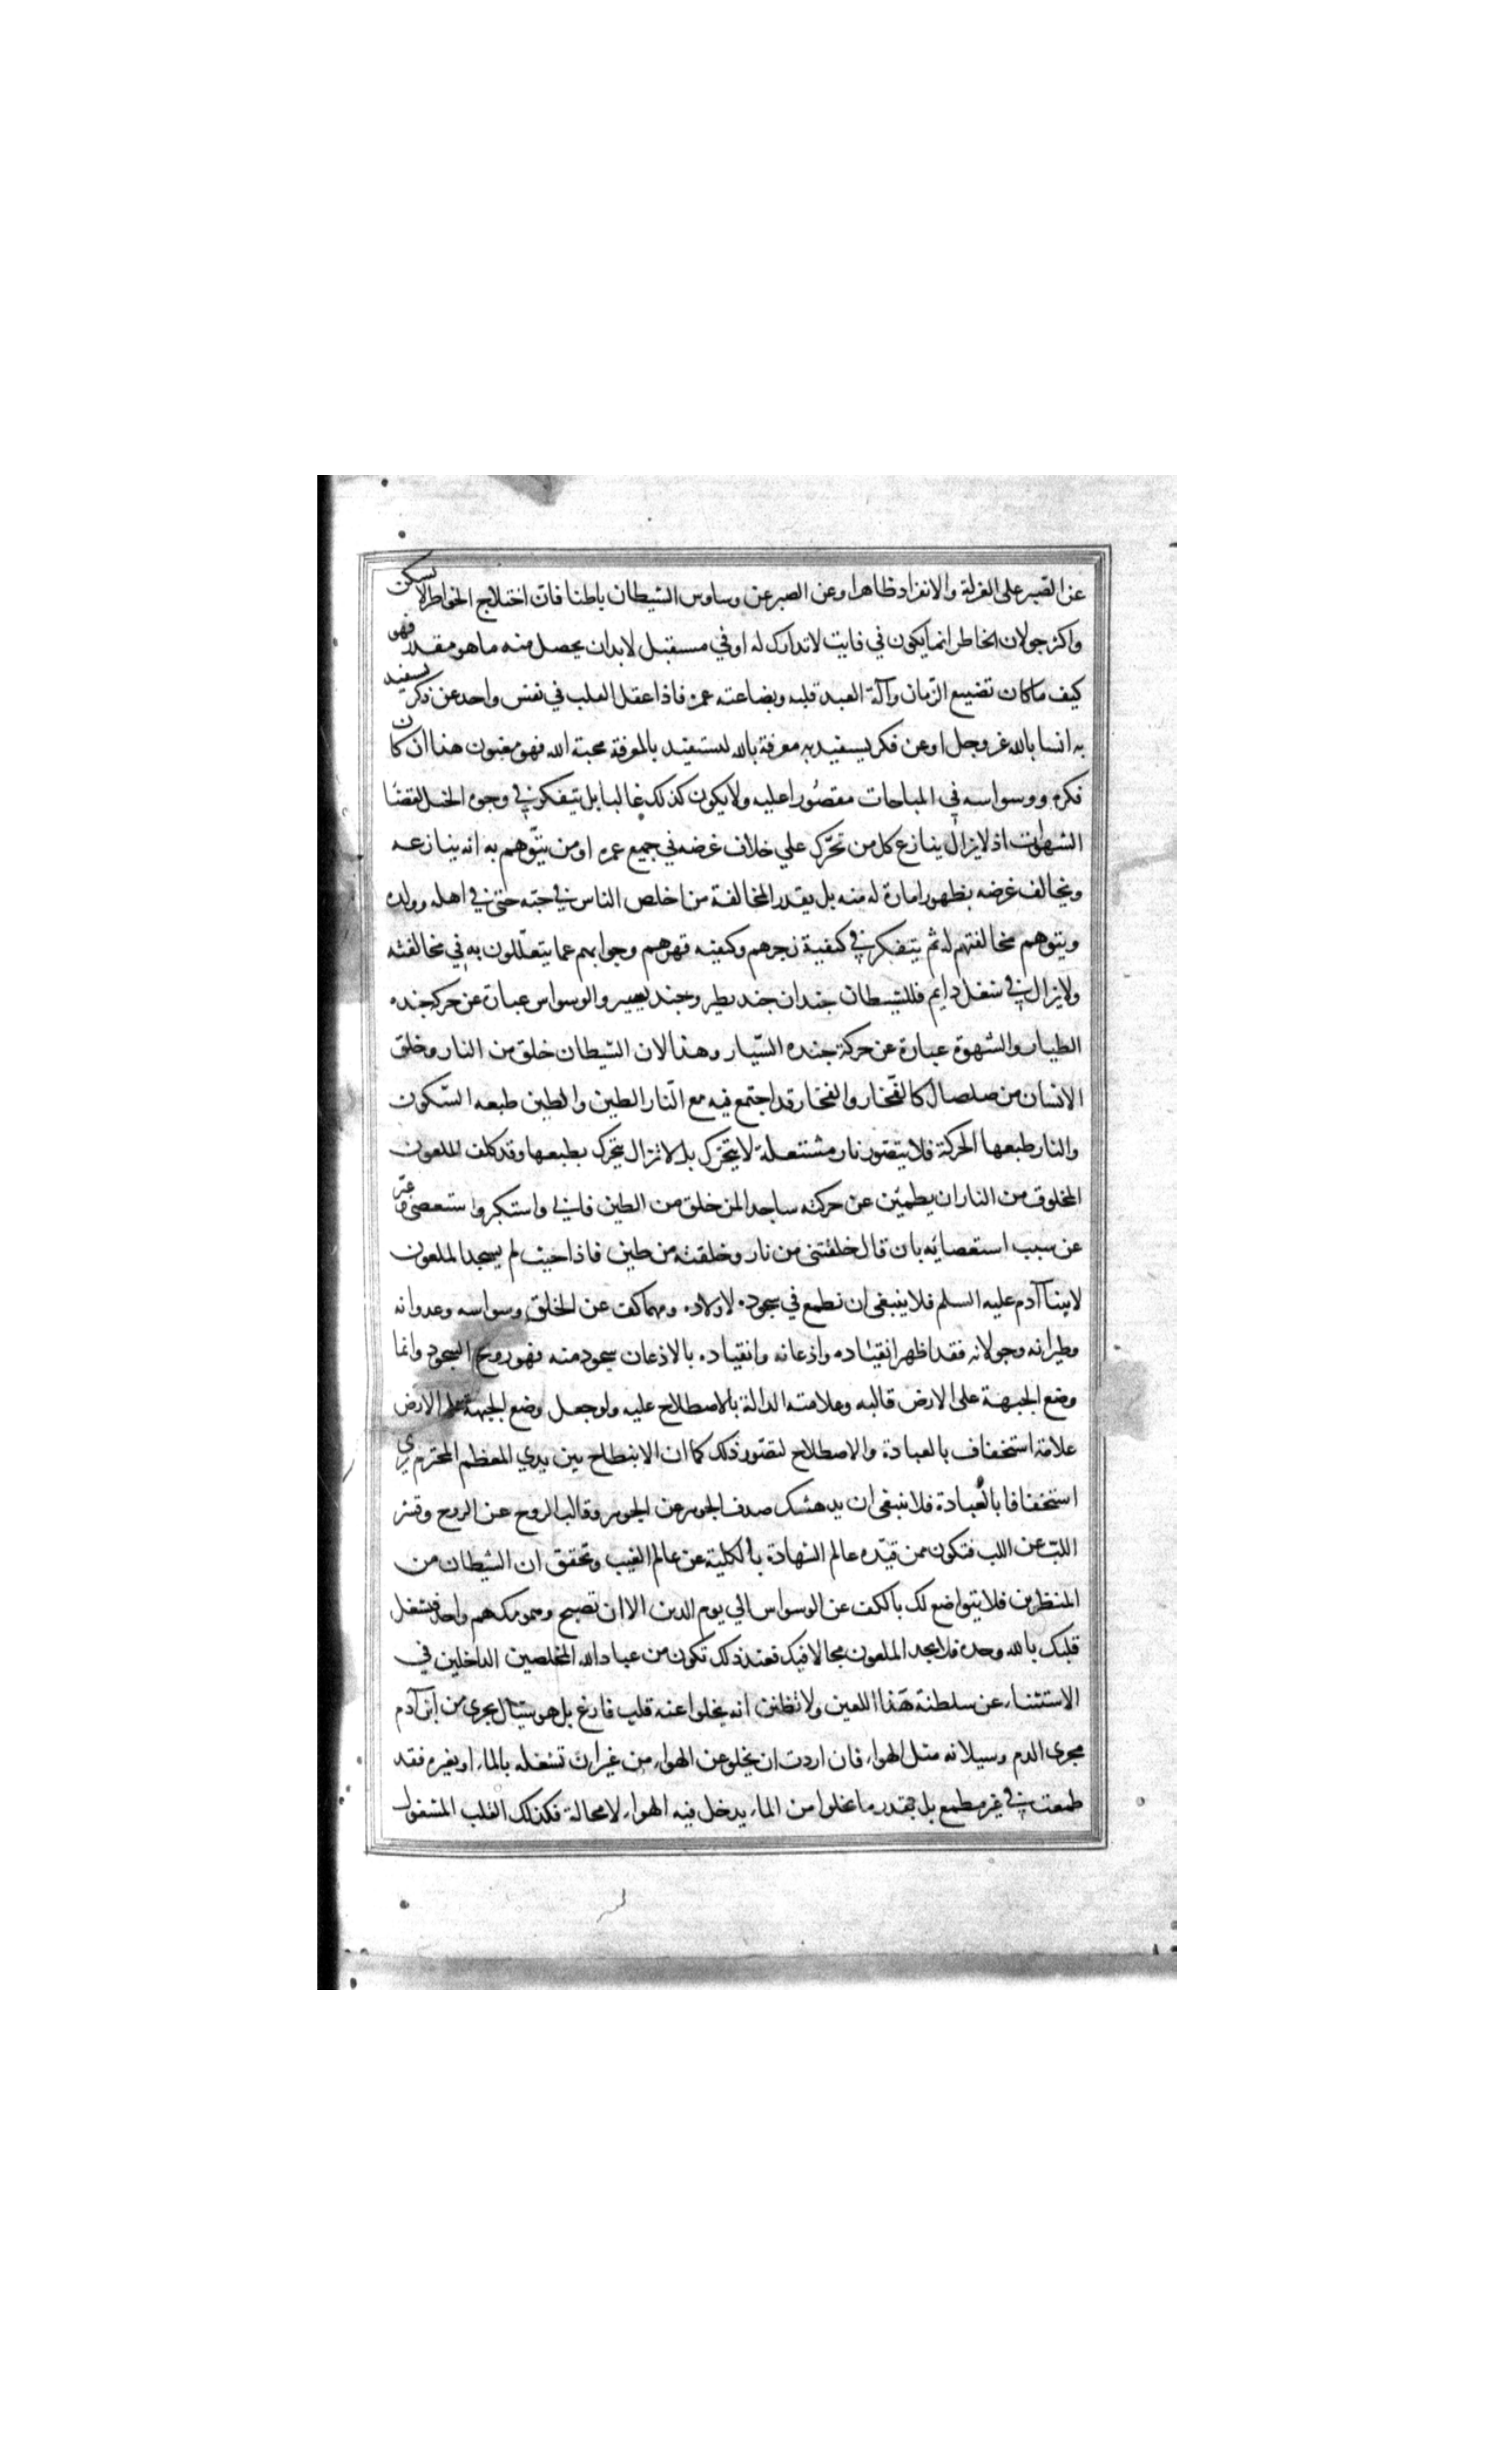 عن الصبر على العزلة والانفراد ظاهرا وعن الصبر عن وساوس الشيطان باطنا فان اختلاج الخواطر لا يسكن
واكثر جولان الخاطر انما يكون في فايت لا تدارك له او في مستقبل لابد ان يحصل منه ما هو مقدر فهو
كيف ما كان تضييع الزمان وآلة العبد قلبه وبضاعته عمره فاذا غفل القلب في نفس واحد عن ذكر يستفيد
به انسا بالله عز وجل او عن فكر يستفيد به معرفة بالله ليستفيد بالمعرفة محبة الله فهو مغبون هذا ان كان
فكره ووسواسه في المباحات مقصورا عليه ولا يكون كذلك غالبا بل يتفكر في وجوه الحيل لقضا
الشهوات اذ لا يزال ينازع كل من تحرك علي خلاف غرضه في جميع عمره او من يتوهم به انه ينازعه
ويخالف غرضه بظهور امارة له منه بل يقدر المخالفة من اخلص الناس في حبه حتى في اهله وولده
ويتوهم مخالفتهم له ثم يتفكر في كيفية زجرهم وكيفيه قهرهم وجوابهم عما يتعللون به في مخالفته
ولا يزال في شغل دايم فللشيطان جندان جند يطير وجند يسير والوسواس عبارة عن حركة جنده
الطيار والشهوة عبارة عن حركة جنده السيار وهذا لان الشيطان خلق من النار وخلق
الانسان من صلصال كالفخار والفخار قد اجتمع فيه مع النار الطين والطين طبعه السكون
والنار طبعها الحركة فلا يتصور نار مشتعلة لا يتحرك بل لا تزال يتحرك بطبعها وقد كلف الملعون
المخلوق من النار ان يطمئن عن حركته ساجدا لمن خلق من الطين فابي واستكبر واستعصى وعبر
عن سبب استعصائه بان قال خلقتني من نار وخلقته من طين فاذا حيث لم يسجد الملعون
لابينا آدم عليه السلم فلا ينبغي ان نطمع في سجوده لاولاده ومهما كف عن الخلق وسواسه وعدوانه
وطيرانه وجولانه فقد اظهر انقياده واذعانه وانقياده بالاذعان سجود منه فهو روح السجود وانما
وضع الجبهة على الارض قالبه وعلامته الدالة بالاصطلاح عليه ولو جعل وضع الجبهة على الارض
علامة استخفاف بالعبادة والاصطلاح لتصور ذلك كما ان الانبطاح بين يدي المعظم المحترم يري
استخفافا بالعبادة فلا ينبغي ان يدهشك صدف الجوهر عن الجوهر وقالب الروح عن الروح وقشر
اللب عن اللب فتكون ممن قيده عالم الشهادة بالكلية عن عالم الغيب وتحقق ان الشيطان من
المنظرين فلا يتواضع لك بالكف عن الوسواس الي يوم الدين الا ان تصبح وهمومك هم واحد فيشغل
قلبك بالله وحده فلا يجد الملعون مجالا فيك فعند ذلك تكون من عباد الله المخلصين الداخلين في
الاستثناء عن سلطنة هذا اللعين ولا تظنن انه يخلوا عنه قلب فارغ بل هو سيال يجرى من ابن آدم
مجرى الدم وسيلانه مثل الهواء فان اردت ان يخلو عن الهواء من غير ان تشغله بالماء او بغيره فقد
طمعت في غير مطمع بل بقدر ما يخلوا من الماء يدخل فيه الهواء لا محالة فكذلك القلب المشغول